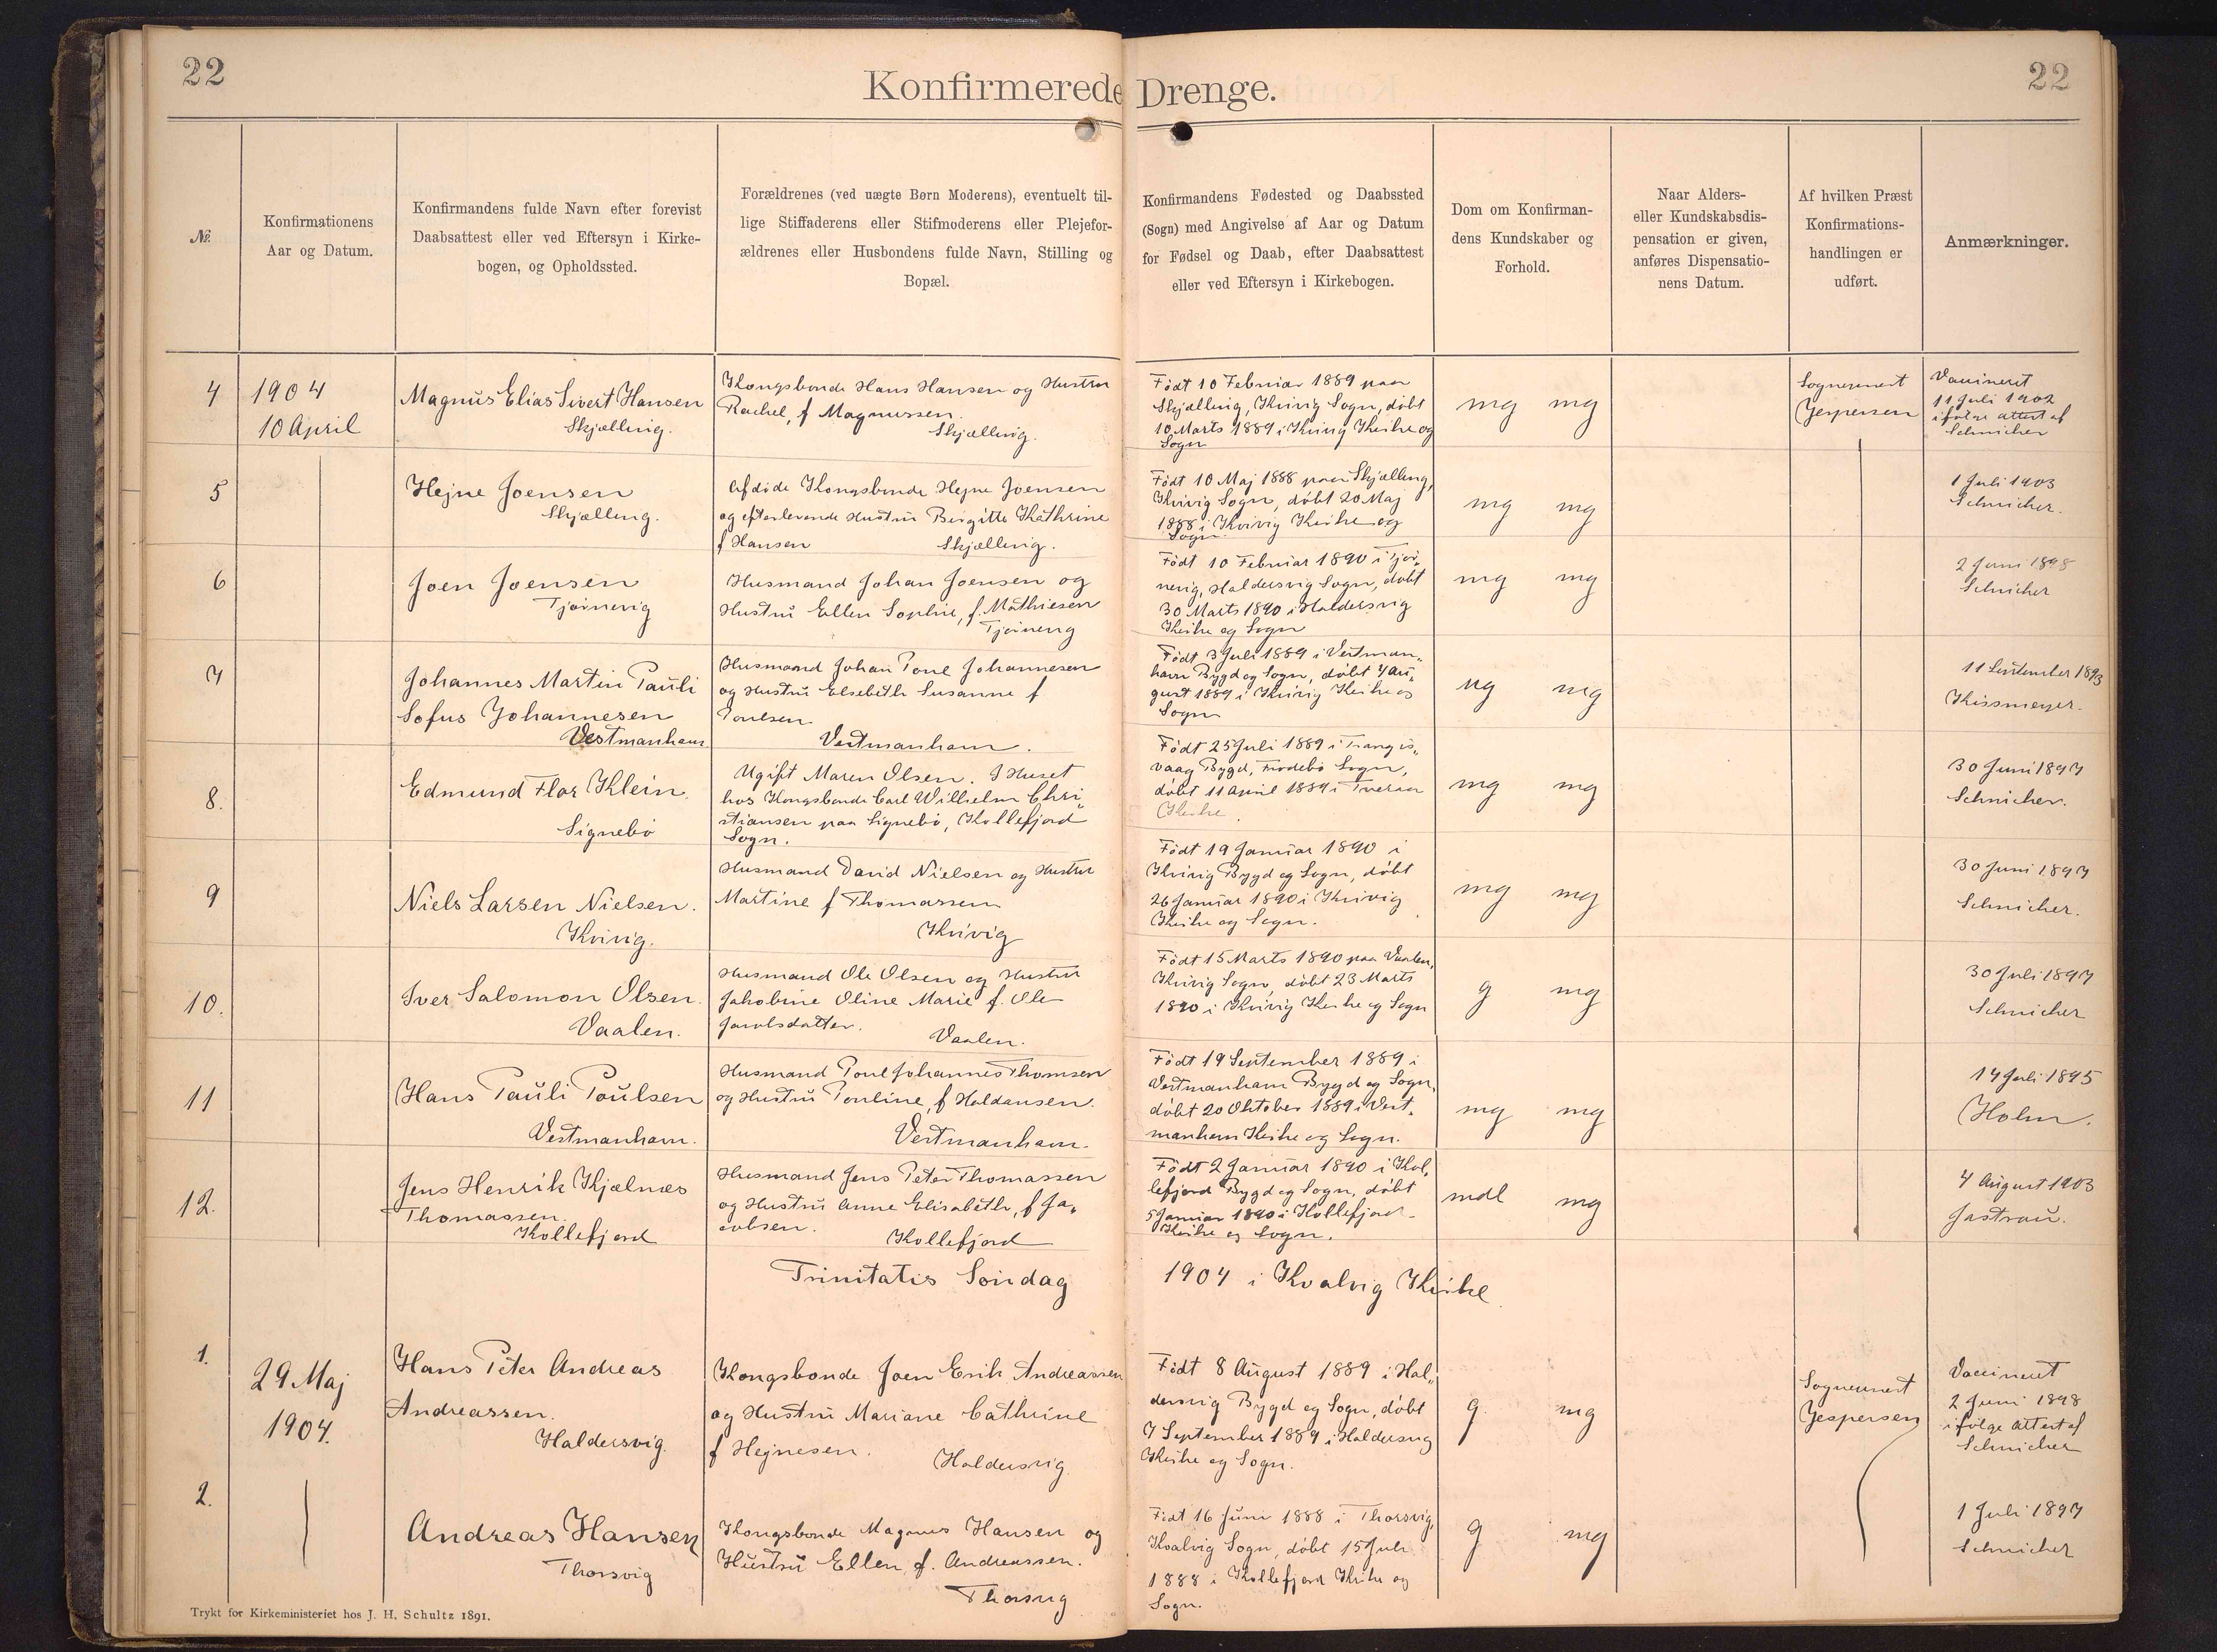 22
22
Konfirmerede Drenge.
№
Konfirmationens
Aar og Datum.
Konfirmandens fulde Navn efter forevist
Daabsattest eller ved Eftersyn i Kirke-
bogen, og Opholdssted.
Forældrenes (ved uægte Børn Moderens), eventuelt til-
lige Stiffaderens eller Stifmoderens eller Plejefor-
ældrenes eller Husbondens fulde Navn, Stilling og
Bopæl.
Konfirmandens Fødested og Daabssted
(Sogn) med Angivelse af Aar og Datum
for Fødsel og Daab, efter Daabsattest
eller ved Eftersyn i Kirkebogen.
Dom om Konfirman-
dens Kundskaber og
Forhold.
Naar Alders-
eller Kundskabsdis-
pensation er given,
anføres Dispensatio-
nens Datum.
Af hvilken Præst
Konfirmations-
handlingen er
udført.
Anmærkninger.
4
1904
10 April
Magnus Elias Sivert Hansen
Skjælling.
Kongsbonde Hans Hansen og Hustru
Rachel, f Magnussen.
Skjælling.
Født 10 Februar 1889 paa
Skjælling, Kvivig Sogn, døbt
10 Marts 1889 i Kvivig Kirke og
Sogn
mg mg
Sognepræst
Jespersen
Vaccineret
11 Juli 1902
ifølge attest af
Schnicher
5
Hejne Joensen
Skjælling.
Afdøde Kongsbonde Hejne Joensen
og efterlevende Hustru Birgitte Kathrine
f Hansen Skjælling.
Født 10 Maj 1888 paa Skjælling,
Kvivig Sogn, døbt 20 Maj
1888 i Kvivig Kirke og
Sogn.
mg mg
1 Juli 1903
Schnicher.
6
Joen Joensen
Tjørnevig
Husmand Johan Joensen og
Hustru Ellen Sophie, f. Mathiesen
Tjørnevig
Født 10 Februar 1890 i Tjør„
nevig, Haldersvig Sogn, døbt
30 Marts 1890 i Haldersvig
Kirke og Sogn
mg mg
2 Juni 1898
Schnicher
7
Johannes Martin Pauli
Sofus Johannesen
Vestmanhavn
Husmand Johan Poul Johannesen
og Hustru Elsebeth Susanne f
Poulsen
Vestmanhavn.
Født 3 Juli 1889 i Vestman„
havn Bygd og Sogn, døbt 4 Au„
gust 1889 i Kvivig Kirke og
Sogn
ug mg
11 September 1893
Kissmeyer.
8.
Edmund Flor Klein.
Signebø
Ugift Maren Olsen. I Huset
hos Kongsbonde Carl Wilhelm Chri„
stiansen paa Signebø, Kollefjord
Sogn.
Født 25 Juli 1889 i Trangis„
vaag Bygd, Frodebø Sogn,
døbt 11 April 1889 i Tveraa
Kirke.
mg mg
30 Juni 1897
Schnicher.
9
Niels Larsen Nielsen.
Kvivig.
Husmand David Nielsen og Hustru
Martine f Thomassen
Kvivig
Født 19 Januar 1890 i
Kvivig Bygd og Sogn, døbt
26 Januar 1890 i Kvivig
Kirke og Sogn.
mg mg
30 Juni 1897
Schnicher.
10.
Iver Salomon Olsen.
Vaalen.
Husmand Ole Olsen og Hustru
Jakobine Oline Marie f. Ole
Jacobsdatter.
Vaalen.
Født 15 Marts 1890 paa Vaalen,
Kvivig Sogn, døbt 23 Marts
1890 i Kvivig Kirke og Sogn
g mg
30 Juli 1897
Schnicher
11
Hans Pauli Poulsen
Vestmanhavn.
Husmand Poul Johannes Thomsen
og Hustru Pouline, f Haldansen.
Vestmanhavn.
Født 19 September 1889 i
Vestmanhavn Bygd og Sogn,
døbt 20 Oktober 1889 i Vest„
manhavn Kirke og Sogn.
mg mg
14 Juli 1895
Holm.
12.
Jens Henrik Kjælnæs
Thomassen.
Kollefjord
Husmand Jens Peter Thomassen
og Hustru Anne Elisabeth, f Ja„
cobsen.
Kollefjord
Født 2 Januar 1890 i Kol„
lefjord Bygd og Sogn, døbt
5 Januar 1890 i Kollefjord
Kirke og Sogn.
mdl mg
4 August 1903
Jastrau.
Trinitatis Søndag 1904 i Kvalvig Kirke
1.
29 Maj
1904.
Hans Peter Andreas
Andreassen.
Haldersvig.
Kongsbonde Joen Erik Andreassen
og Hustru Mariane Cathrine
f Hejnesen.
Haldersvig.
Født 8 August 1889 i Hal„
dersvig Bygd og Sogn, døbt
7 September 1889 i Haldersvig
Kirke og Sogn.
g mg
Sognepræst
Jespersen
Vaccineret
2 Juni 1898
ifølge Attest af
Schnicher
2.
Andreas Hansen
Thorsvig
Kongsbonde Magnus Hansen og
Hustru Ellen, f. Andreassen.
Thorsvig
Født 16 Juni 1888 i Thorsvig,
Kvalvig Sogn, døbt 15 Juli
1888 i Kollefjord Kirke og
Sogn.
g mg
1 Juli 1897
Schnicher
Trykt for Kirkeministeriet hos J. H. Schultz 1891.